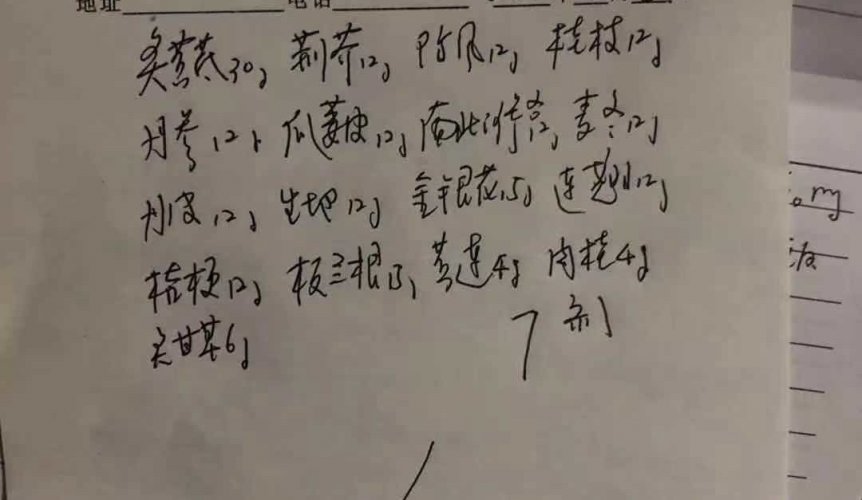 地址 电话
炙黄芪30g 荆芥12g 防风12g 桂枝12g
丹参12g 瓜蒌皮12g 南北沙参各12g 麦冬12g
丹皮12g 生地12g 金银花15g 连翘12g
桔梗12g 板兰根15g 黄连4g 肉桂4g
炙甘草6g 7剂
mg